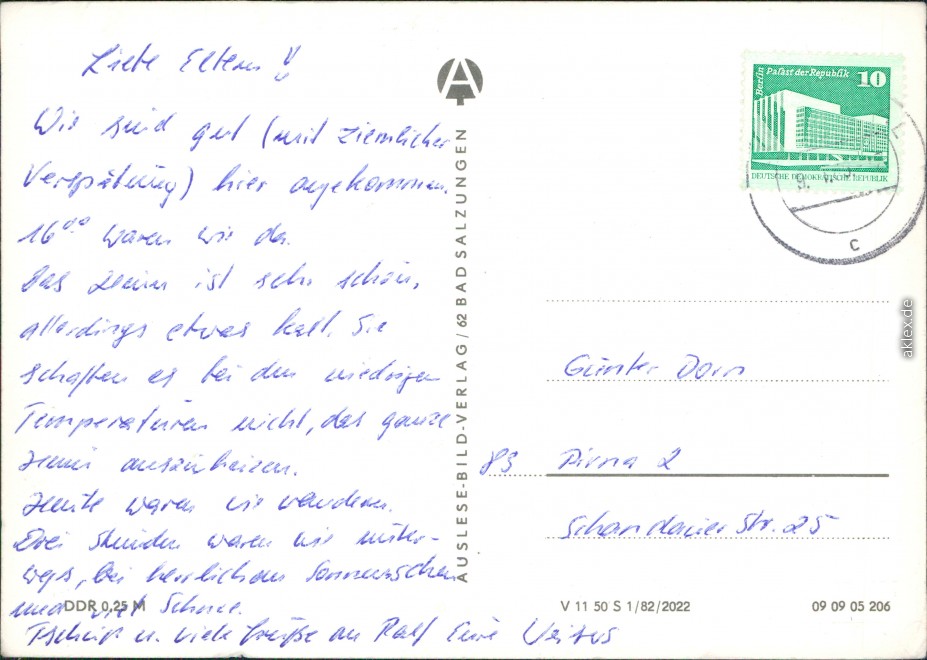 Liebe Eltern!
Wir sind gut (mit ziemlicher
Verspätung) hier angekommen.
16⁰⁰ waren wir da.
Das Heim ist sehr schön,
allerdings etwas kalt. Sie
schaffen es bei den niedrigen
Temperaturen nicht, das ganze
Heim auszuheizen.
Heute waren wir wandern.
Drei Stunden waren wir unter-
wegs, bei herrlichem Sonnenschein
und viel Schnee.
Tschüß u. viele Grüße an Ralf Eure
DDR 0,25 M
AUSLESE-BILD-VERLAG / 62 BAD SALZUNGEN
A
Berlin Palast der Republik 10
DEUTSCHE DEMOKRATISCHE REPUBLIK
C
Günter Dorn
83 Pirna 2
Schandauer Str. 25
V 11 50 S 1/82/2022 09 09 05 206
aklex.de